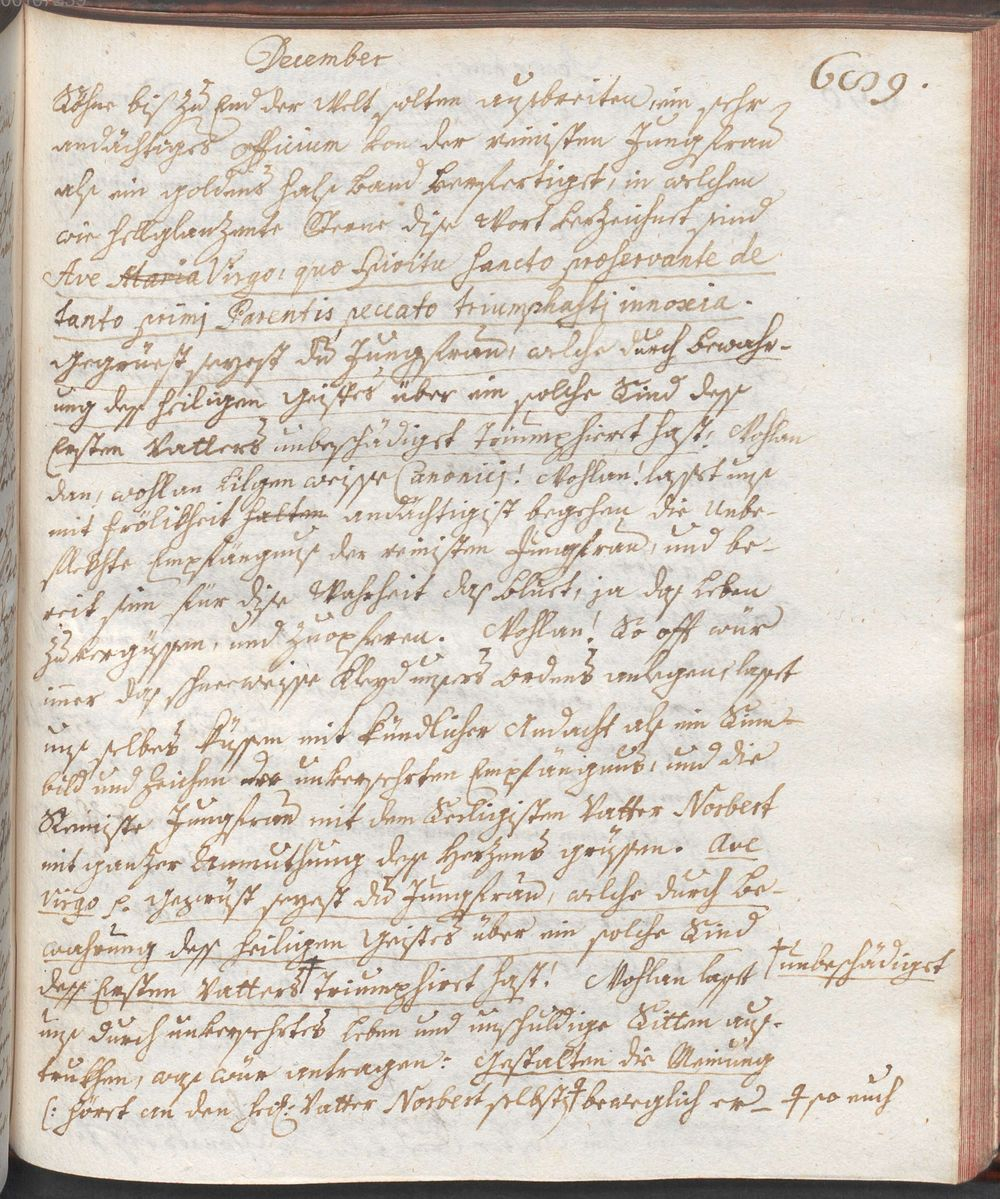 December
609.
Söhne biß zu End der Welt solten ausbreiten, ein sehr
andächtiges officium von der reinisten Jungfrau
als ein goldens Halß Band verfertiget, in welchen
wie hellglanzente Sterne dise Wort verzeichnet sind
Ave Maria Virgo, quæ Spiritu Sancto præservante de
tanto primj Parentis peccato triumphastj innoxia.
Gegrüest seyest du Jungfrau, welche durch bewahr-
ung deß heiligen Geistes über ein solche Sind deß
Ersten Vatters unbeschädiget triumphieret hast! Wohlan
dan, wohlan Lilgen weisse Canonicj! Wohlan! lasset unß
mit Frölikheit halten andächtigist begehen die Unbe-
flekhte Empfängnuß der reinisten Jungfrau, und be-
reit sein für dise Wahrheit das Bluet, ja das Leben
zu vergüssen, und zuopferen. Wohlan! So offt wür
immer das schneeweisse Kleyd unsers Ordens anlegen, lasset
unß selbes küssen mit kündlicher Andacht als ein Sinn-
bild und Zeichen der unversehrten Empfängnus, und die
Reiniste Jungfrau mit dem Seeligisten Vatter Norbert
mit ganzer Anmuthung deß Herzens grüssen. Ave
Virgo p. gegrüst seyest du Jungfrau, welche durch be-
wahrung deß heiligen Geistes über ein solche Sind
deß Ersten Vatters † triumphiret hast! Wohlan lasst
† unbeschädiget
unß durch unversehrtes Leben und unschuldige Sitten aus-
trukhen, was wür antragen: Gestalten die Meinung
(: höret an den heil: Vatter Norbert selbst :) beweglich er-
so euch